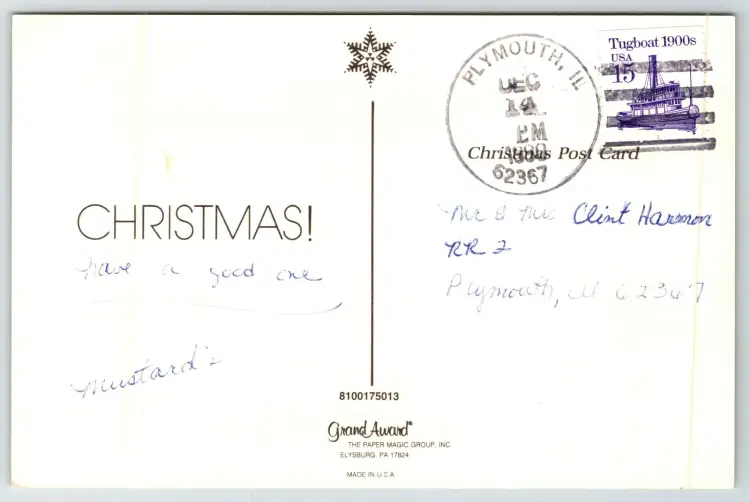 CHRISTMAS!
have a good one
Mustard's
8100175013
Grand Award®
THE PAPER MAGIC GROUP, INC.
ELYSBURG, PA 17824
MADE IN U.S.A.
PLYMOUTH, IL
DEC
14
PM
62367
Tugboat 1900s
USA
15
Christmas Post Card
Mr & Mrs Clint Harmon
RR 2
Plymouth, Ill 62367